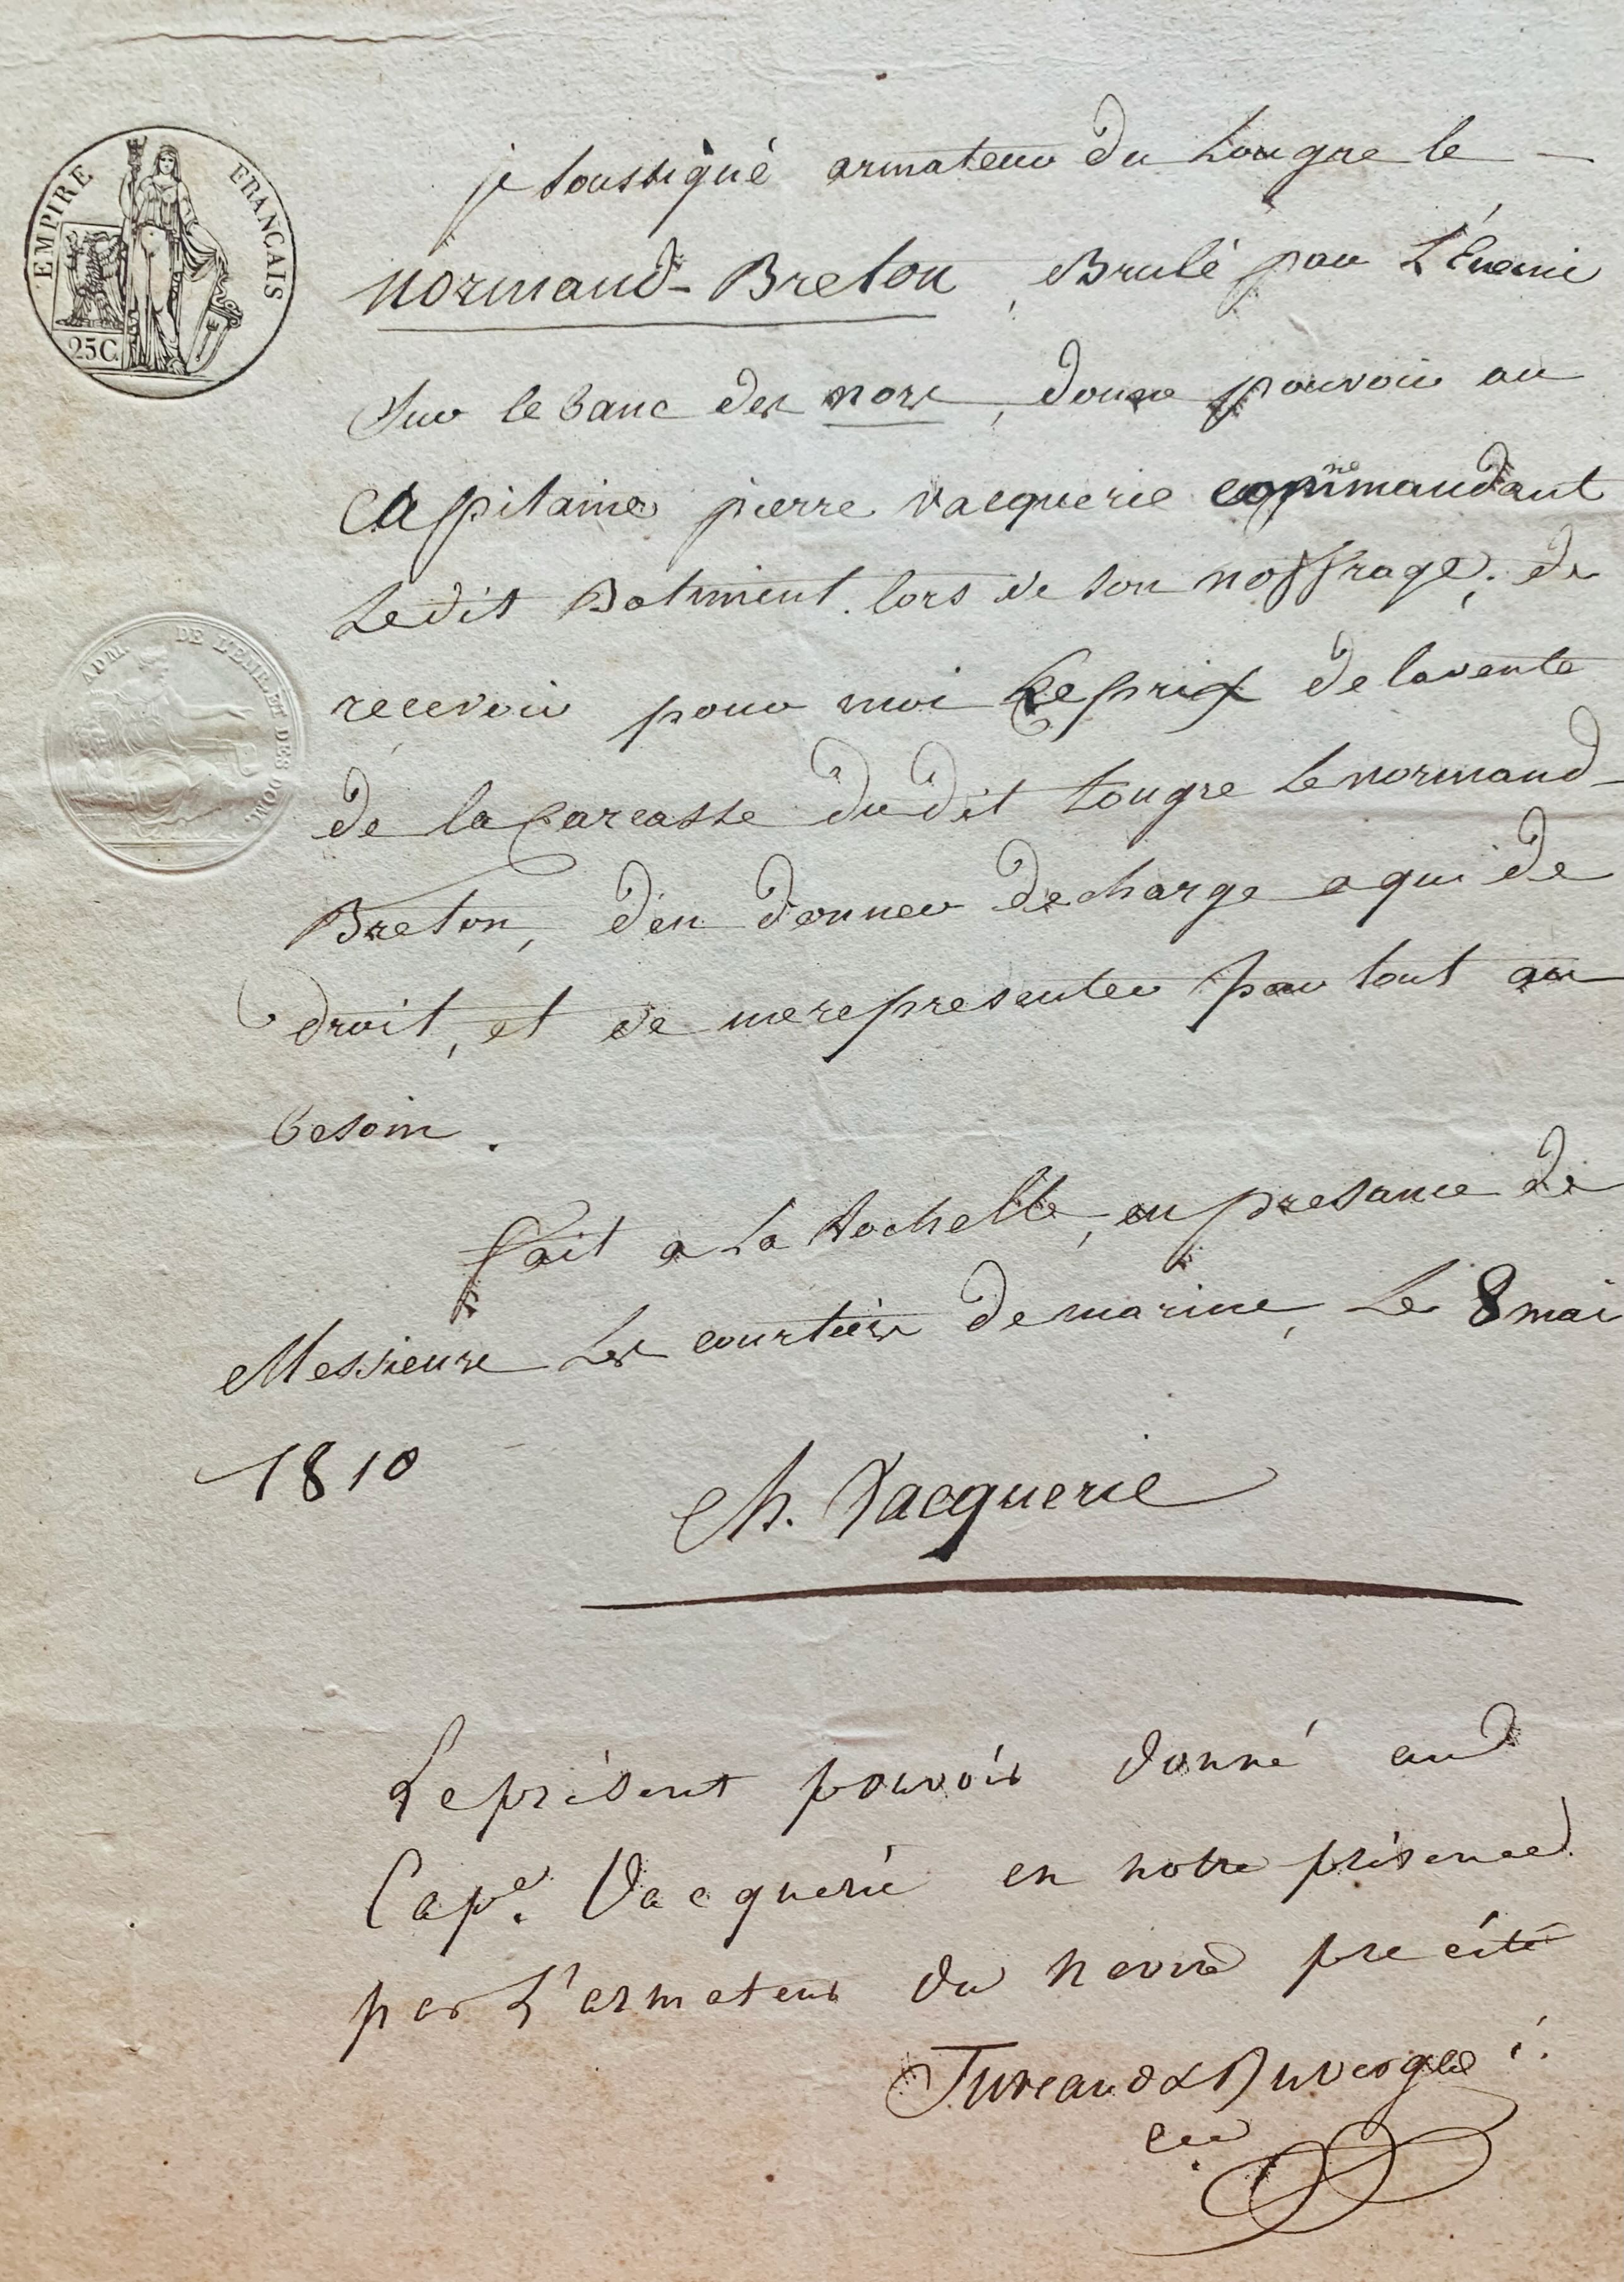 EMPIRE FRANÇAIS
25C
ADM. DE L'ENR. ET DES DOM.
je soussigné armateur du Lougre le
normand-Breton, Brulé par L'Énemi
Sur le banc des mors, donne pouvoir au
Capitaine pierre vacquerie commandant
Ledit Batiment lors de son noffrage, de
recevoir pour moi Le prix de la vente
de la Carcasse du dit Lougre Le normand-
Breton, d'en donner decharge a qui de
droit, et de me representer par tout au
besoin.
fait a La Rochelle, en presance de
Messieurs Les courtiers de marine, Le 8 mai
1810
Ch. Vacquerie
Le présent pouvoir donné aud
Cape. Vacquerie en notre présence
par L'armateur du navire pre cité